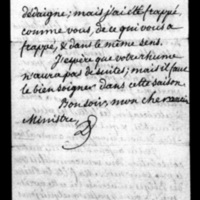 dédaigne; mais j'ai été frappé,
comme vous, de ce qui vous a
frappé, & dans le même sens.
J'espère que votre rhume
n'aura pas de suites; mais il faut
le bien soigner dans cette saison.
Bonsoir, mon cher
Ministre,